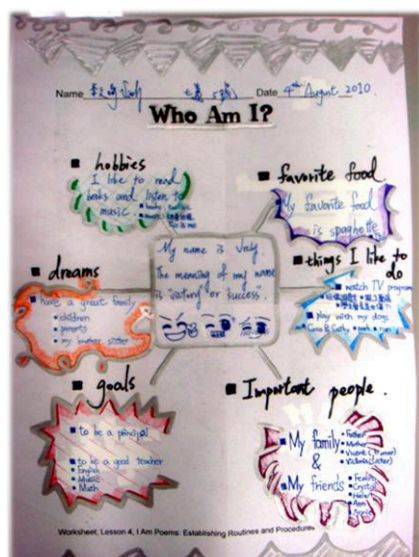 Name Date 4th August 2010
Who Am I?
hobbies
I like to read
books and listen to
music
favorite food
My favorite food
is spaghetti
My name is
The meaning of my name
is "victory" or success".
dreams
have a great family
children
parents
my brother, sister
things I like to
do
watch TV program
play with my dogs
goals
to be a principal
to be a good teacher
English
Music
Math
Important people.
My family
&
My friends
Father
Mother
Crystal
Worksheet, Lesson 4, I Am Poems: Establishing Routines and Procedures